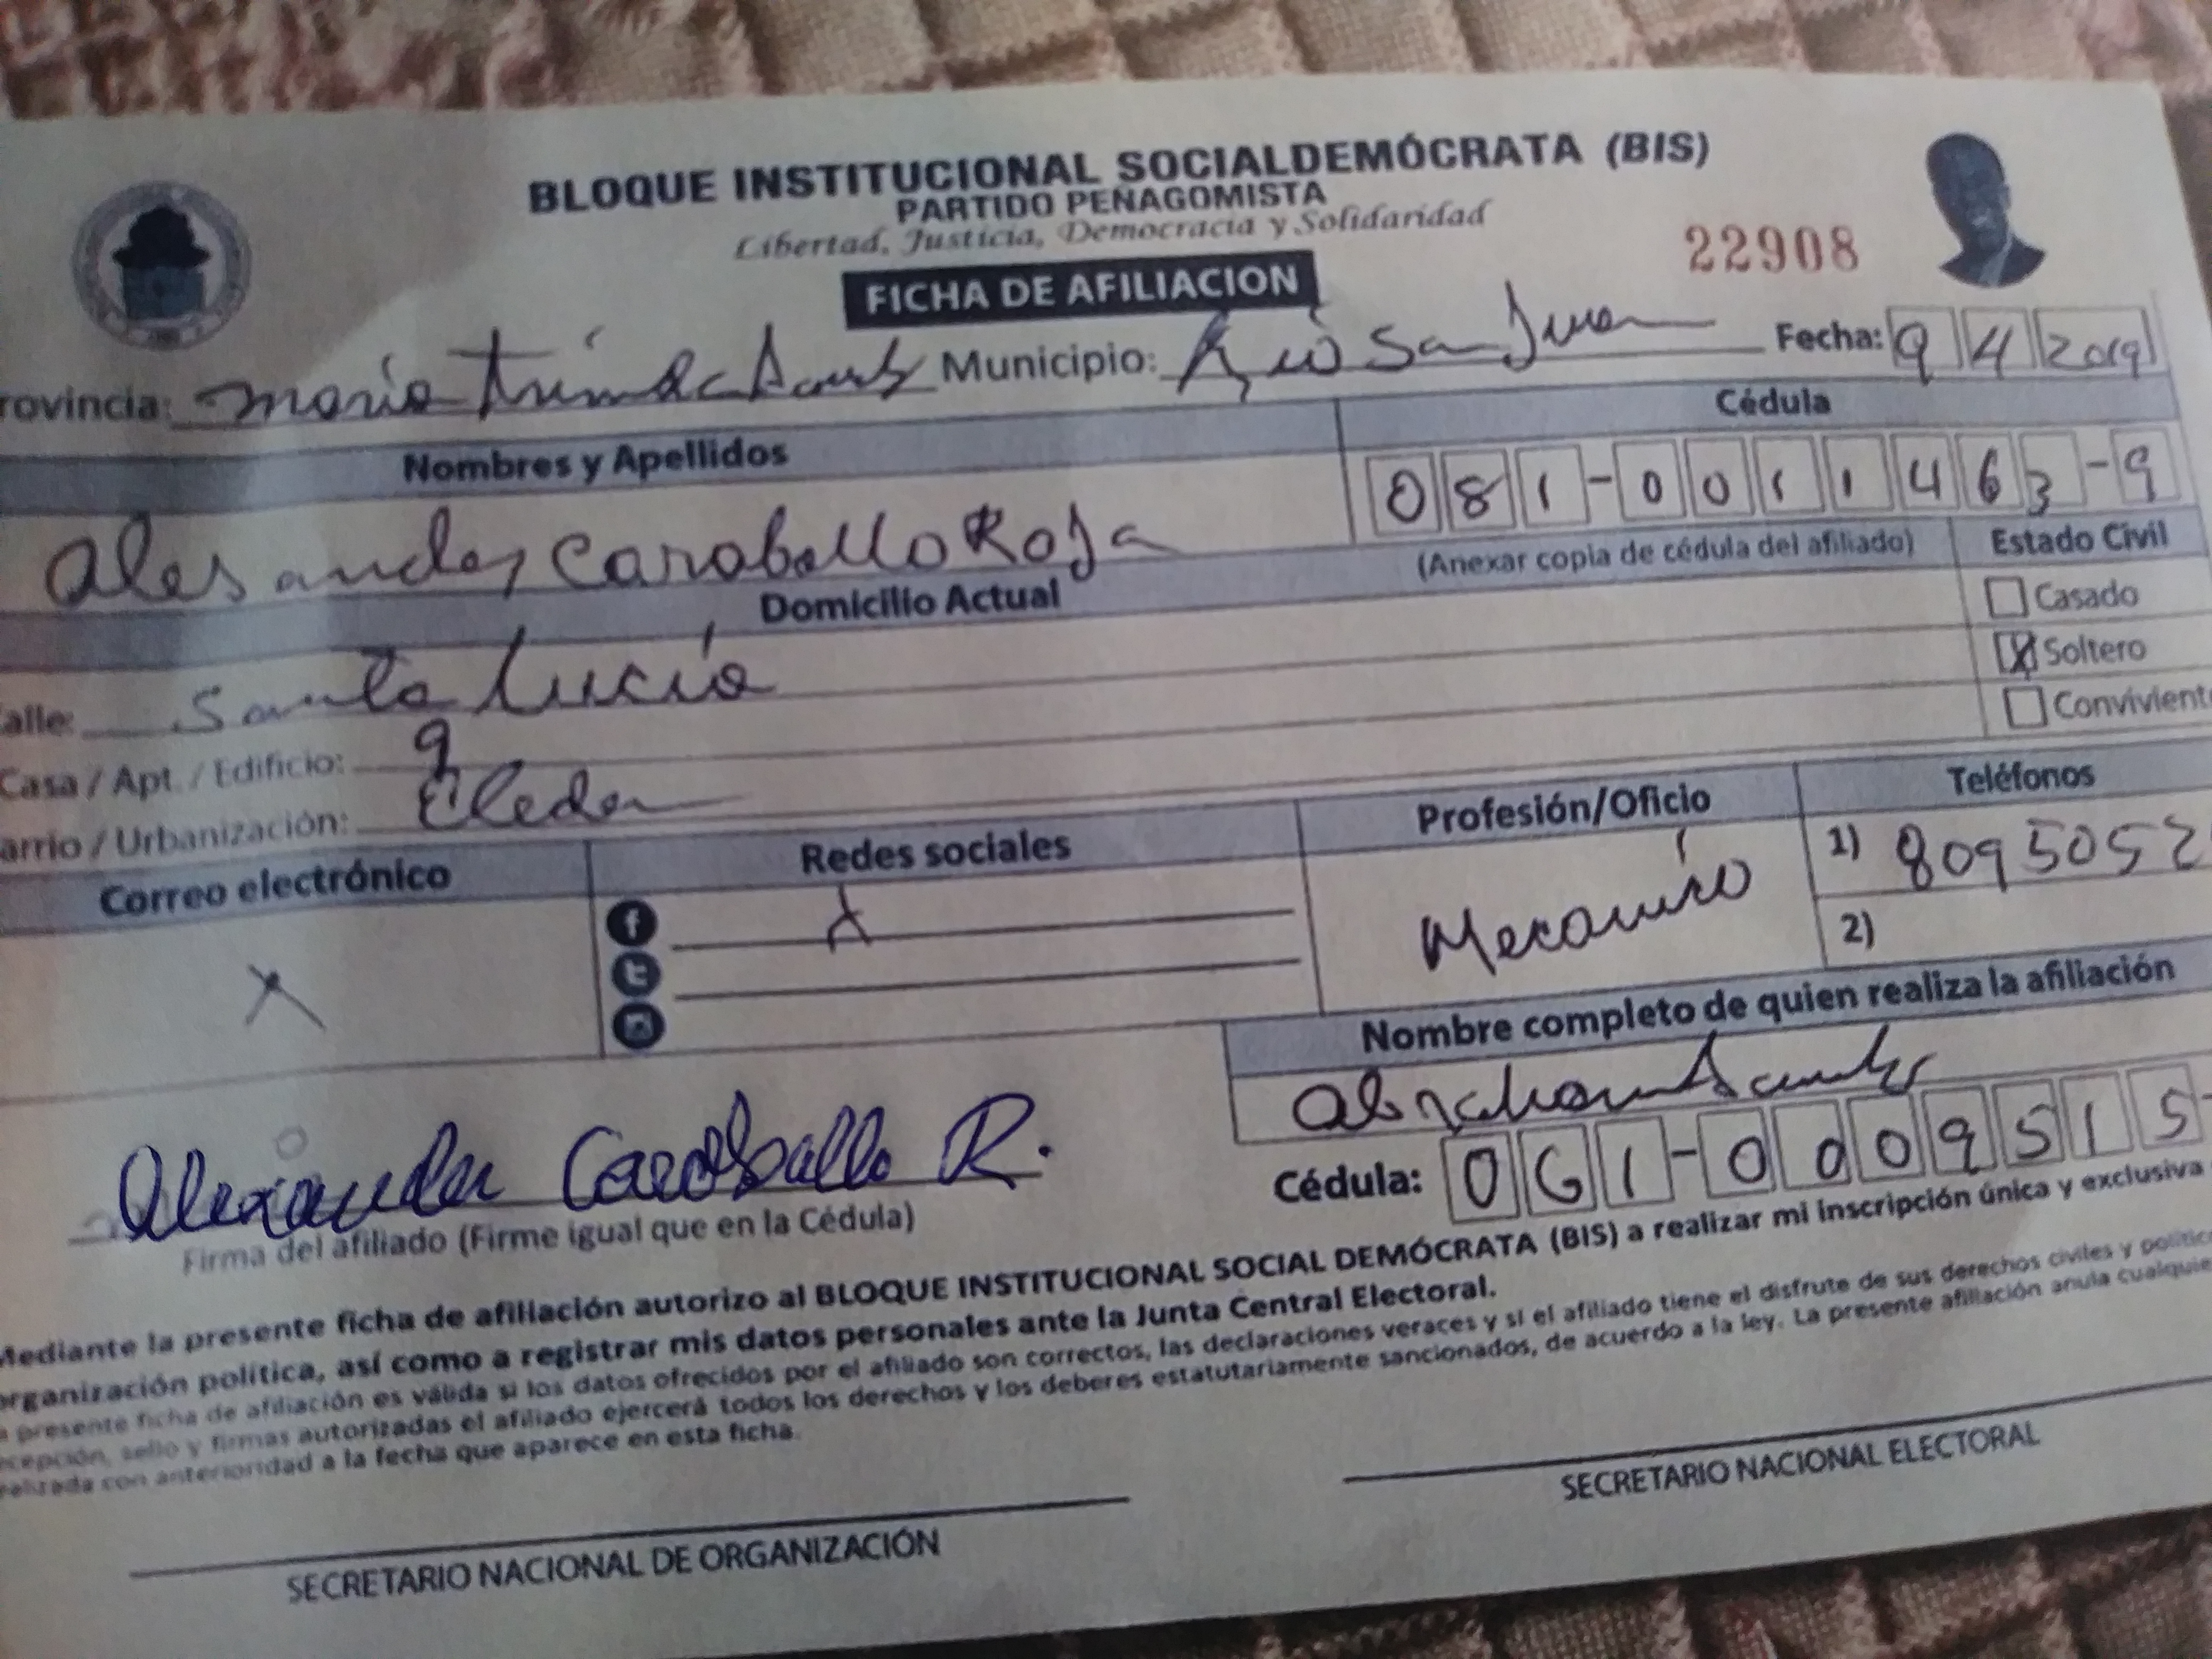 BLOQUE INSTITUCIONAL SOCIALDEMÓCRATA (BIS)
PARTIDO PEÑAGOMISTA
Libertad, Justicia, Democracia y Solidaridad
22908
FICHA DE AFILIACION
rovincia: maria Municipio: Rio San Juan Fecha: 9 4 2019
Nombres y Apellidos Cédula
alesander Caraballo Roja 081-0011463-9
(Anexar copia de cédula del afiliado) Estado Civil
Domicilio Actual
Casado
X Soltero
Convivient
alle: Santa Lucia
Casa / Apt. / Edificio: 9
arrio / Urbanización:
Correo electrónico Redes sociales Profesión/Oficio Teléfonos
X X Mecanico 1) 8095052
2)
Nombre completo de quien realiza la afiliación
Cédula: 0G1-0009515-
Alexander Caraballo R.
Firma del afiliado (Firme igual que en la Cédula)
Mediante la presente ficha de afiliación autorizo al BLOQUE INSTITUCIONAL SOCIAL DEMÓCRATA (BIS) a realizar mi inscripción única y exclusiva
organización política, así como a registrar mis datos personales ante la Junta Central Electoral.
a presente ficha de afiliación es válida si los datos ofrecidos por el afiliado son correctos, las declaraciones veraces y si el afiliado tiene el disfrute de sus derechos civiles y polític
cepción, sello y firmas autorizadas el afiliado ejercerá todos los derechos y los deberes estatutariamente sancionados, de acuerdo a la ley. La presente afiliación anula cualquie
realizada con anterioridad a la fecha que aparece en esta ficha.
SECRETARIO NACIONAL DE ORGANIZACIÓN
SECRETARIO NACIONAL ELECTORAL